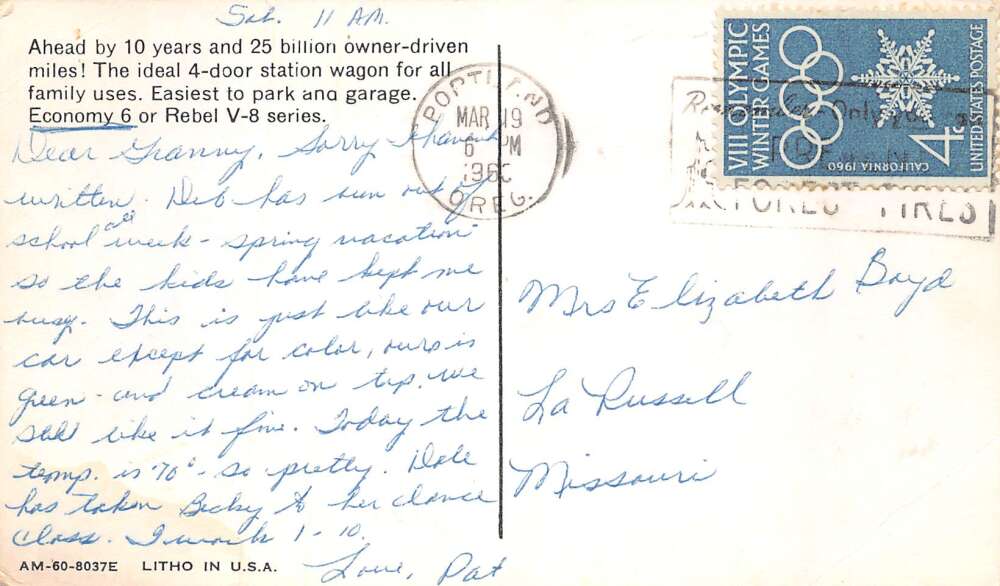 Sat. 11 AM.
Ahead by 10 years and 25 billion owner-driven
miles! The ideal 4-door station wagon for all
family uses. Easiest to park and garage.
Economy 6 or Rebel V-8 series.
Dear Granny, Sorry I haven't
written. Deb has been out of
school all week - spring vacation
so the kids have kept me
busy. This is just like our
car except for color, ours is
green - and cream on top. We
still like it fine. Today the
temp. is 70° - so pretty. Dale
has taken Becky to her dance
class. I work 1 - 10.
Love, Pat
AM-60-8037E LITHO IN U.S.A.
PORTLAND
MAR 19
6 PM
1960
OREG.
Only you
FOREST FIRES
VIII OLYMPIC
WINTER GAMES
CALIFORNIA 1960
4c
UNITED STATES POSTAGE
Mrs Elizabeth Boyd
La Russell
Missouri